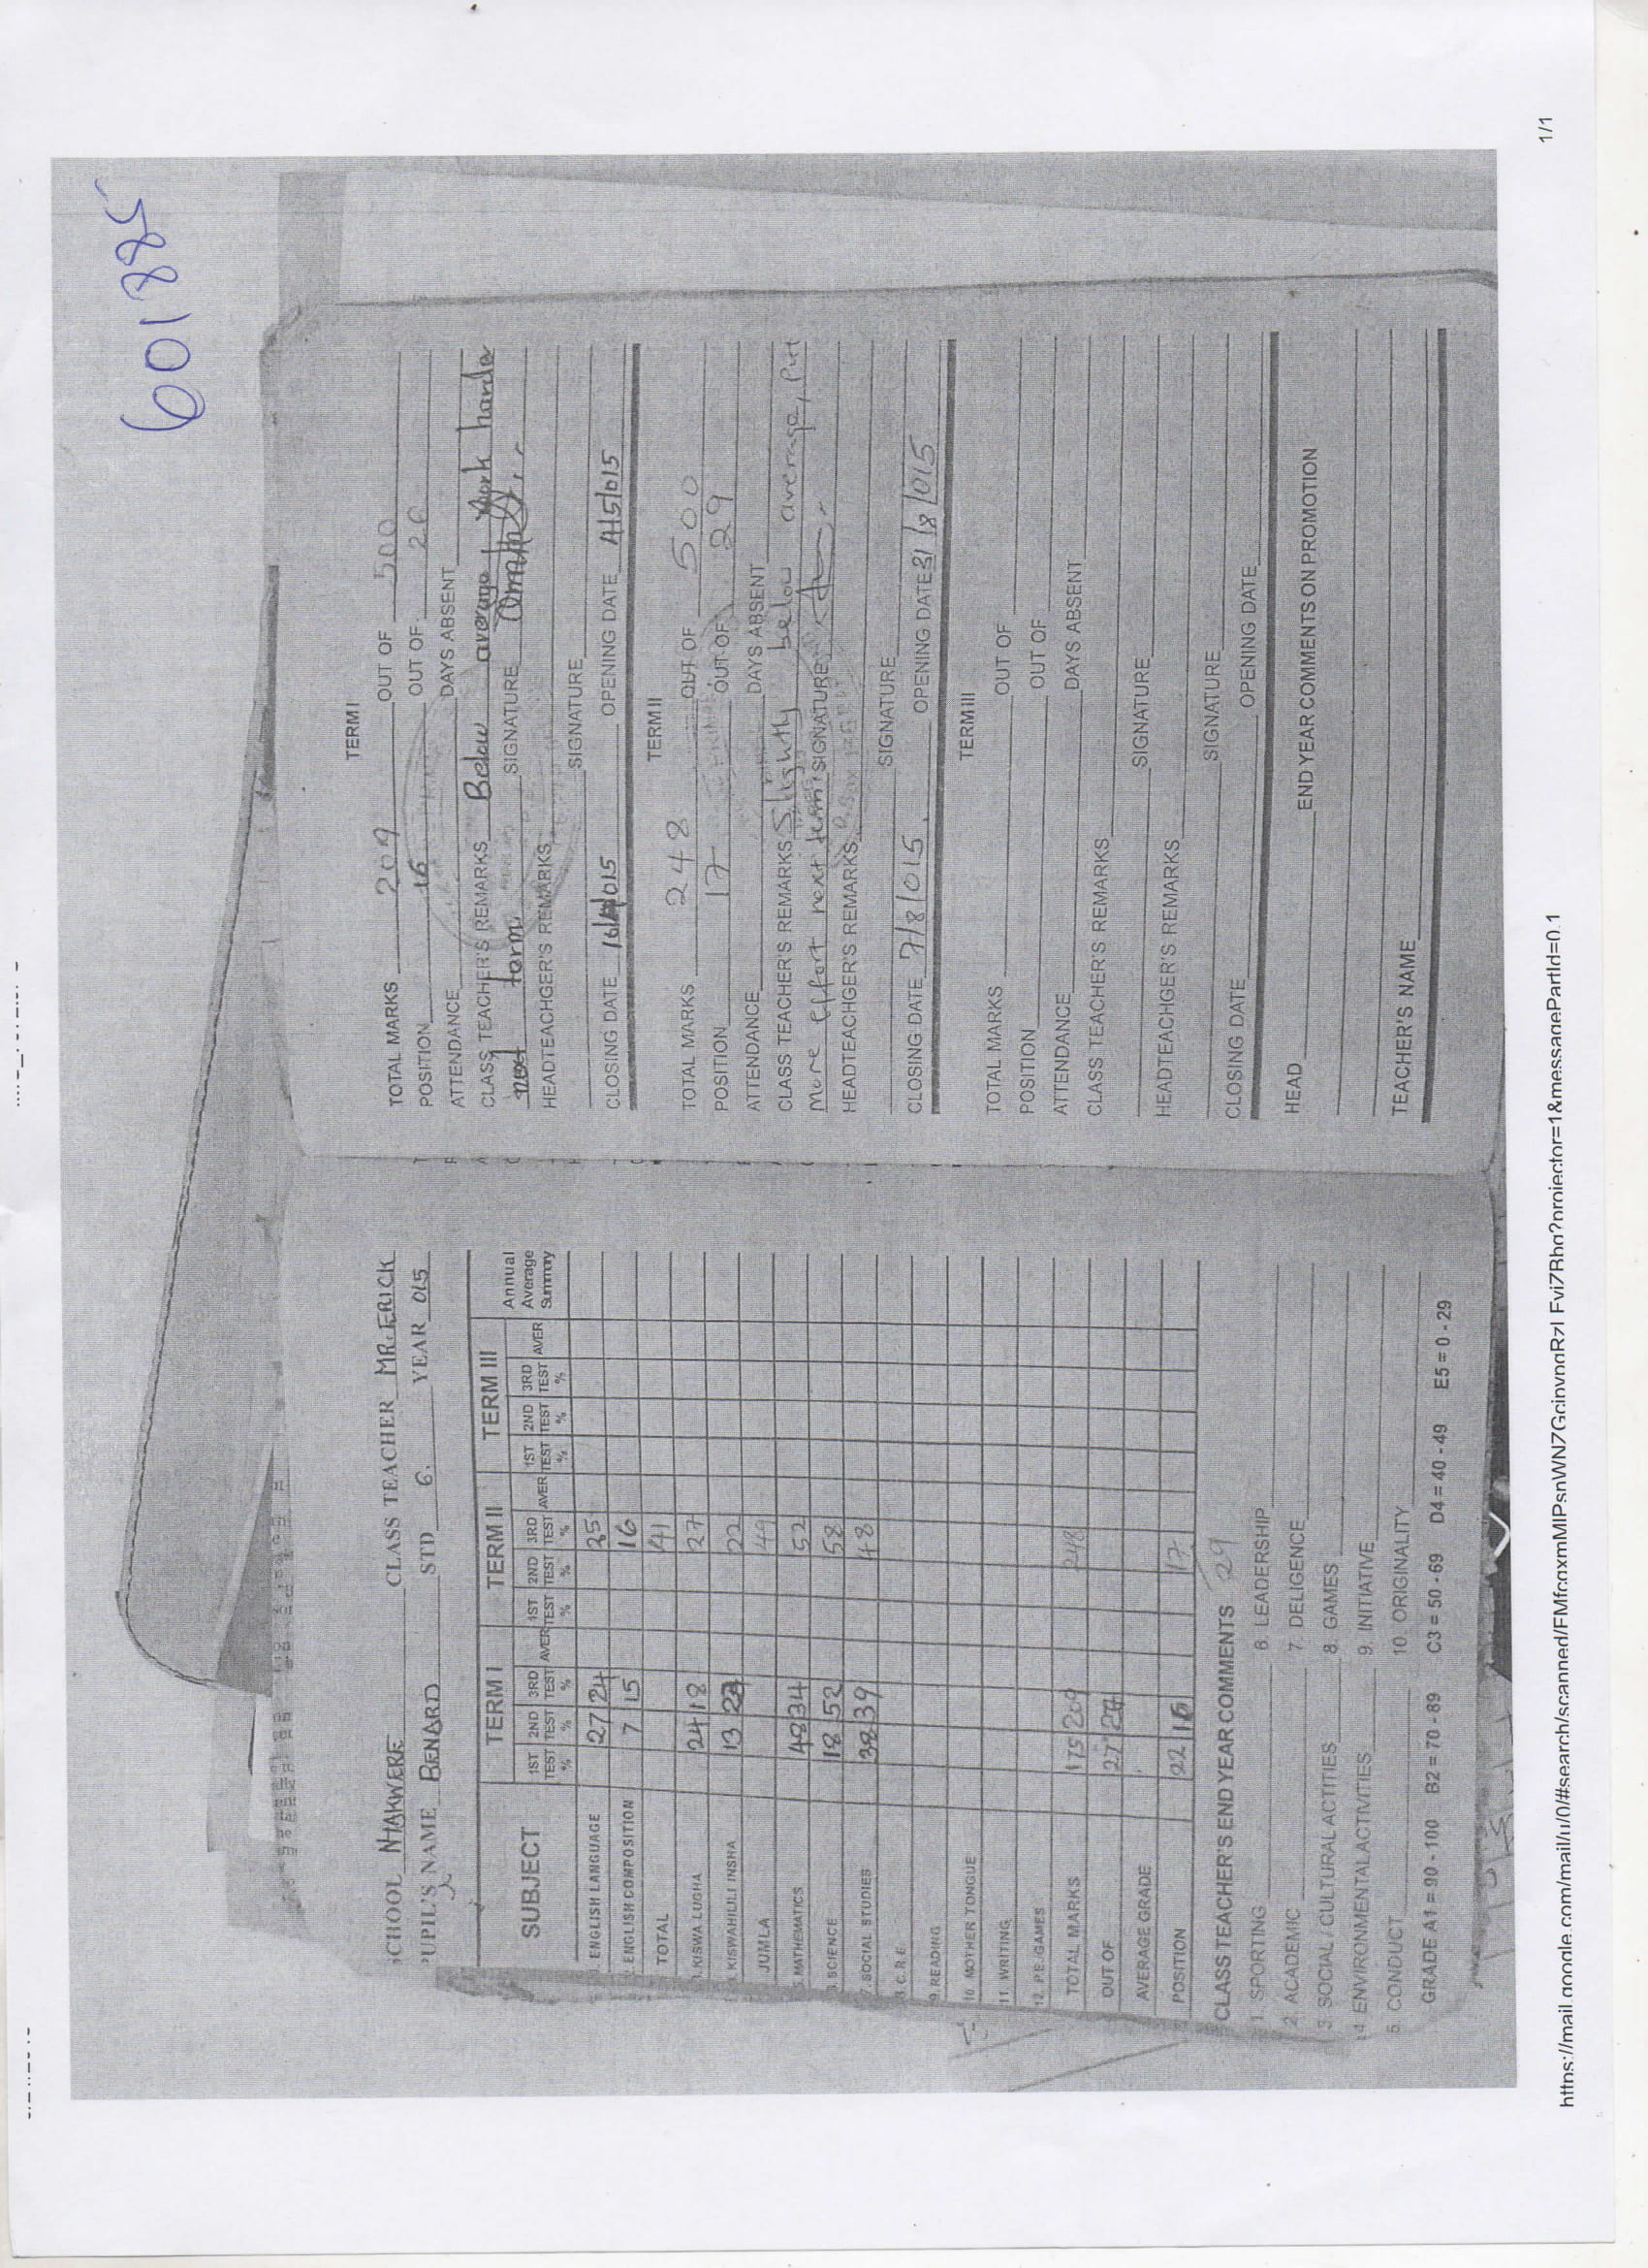 601885
SCHOOL NYAKWERE CLASS TEACHER MR. ERICK
PUPIL'S NAME BENARD STD 6. YEAR 015
SUBJECT TERM I TERM II TERM III Annual Average Summary
1ST TEST % 2ND TEST % 3RD TEST % AVER 1ST TEST % 2ND TEST % 3RD TEST % AVER 1ST TEST % 2ND TEST % 3RD TEST % AVER
ENGLISH LANGUAGE 27 24 25
ENGLISH COMPOSITION 7 15 16
TOTAL 41
KISWA LUGHA 24 18 27
KISWAHILILI INSHA 13 22
JUMLA 49
5. MATHEMATICS 48 34 52
SCIENCE 18 52 58
7. SOCIAL STUDIES 38 39 48
C.R.E.
9. READING
10. MOTHER TONGUE
11. WRITING
12. P.E./GAMES
TOTAL MARKS 175 209 248
OUT OF 27
AVERAGE GRADE
POSITION 22 16 17
CLASS TEACHER'S END YEAR COMMENTS 29
1. SPORTING 6. LEADERSHIP
2. ACADEMIC 7. DELIGENCE
3. SOCIAL / CULTURAL ACTITIES 8. GAMES
4. ENVIRONMENTAL ACTIVITIES 9. INITIATIVE
5. CONDUCT 10. ORIGINALITY
GRADE A1 = 90 - 100 B2 = 70 - 89 C3 = 50 - 69 D4 = 40 - 49 E5 = 0 - 29
TERM I
TOTAL MARKS 209 OUT OF 500
POSITION 16 OUT OF 26
ATTENDANCE DAYS ABSENT
CLASS TEACHER'S REMARKS Below average work harder
next term SIGNATURE
HEADTEACHGER'S REMARKS
SIGNATURE
CLOSING DATE 16/4/015 OPENING DATE 4/5/015
TERM II
TOTAL MARKS 248 OUT OF 500
POSITION 17 OUT OF 29
ATTENDANCE DAYS ABSENT
CLASS TEACHER'S REMARKS Slightly below average, Put
more effort next term, SIGNATURE
HEADTEACHGER'S REMARKS
SIGNATURE
CLOSING DATE 7/8/015 OPENING DATE 31/8/015
TERM III
TOTAL MARKS OUT OF
POSITION OUT OF
ATTENDANCE DAYS ABSENT
CLASS TEACHER'S REMARKS
SIGNATURE
HEADTEACHGER'S REMARKS
SIGNATURE
CLOSING DATE OPENING DATE
HEAD END YEAR COMMENTS ON PROMOTION
TEACHER'S NAME
1/1